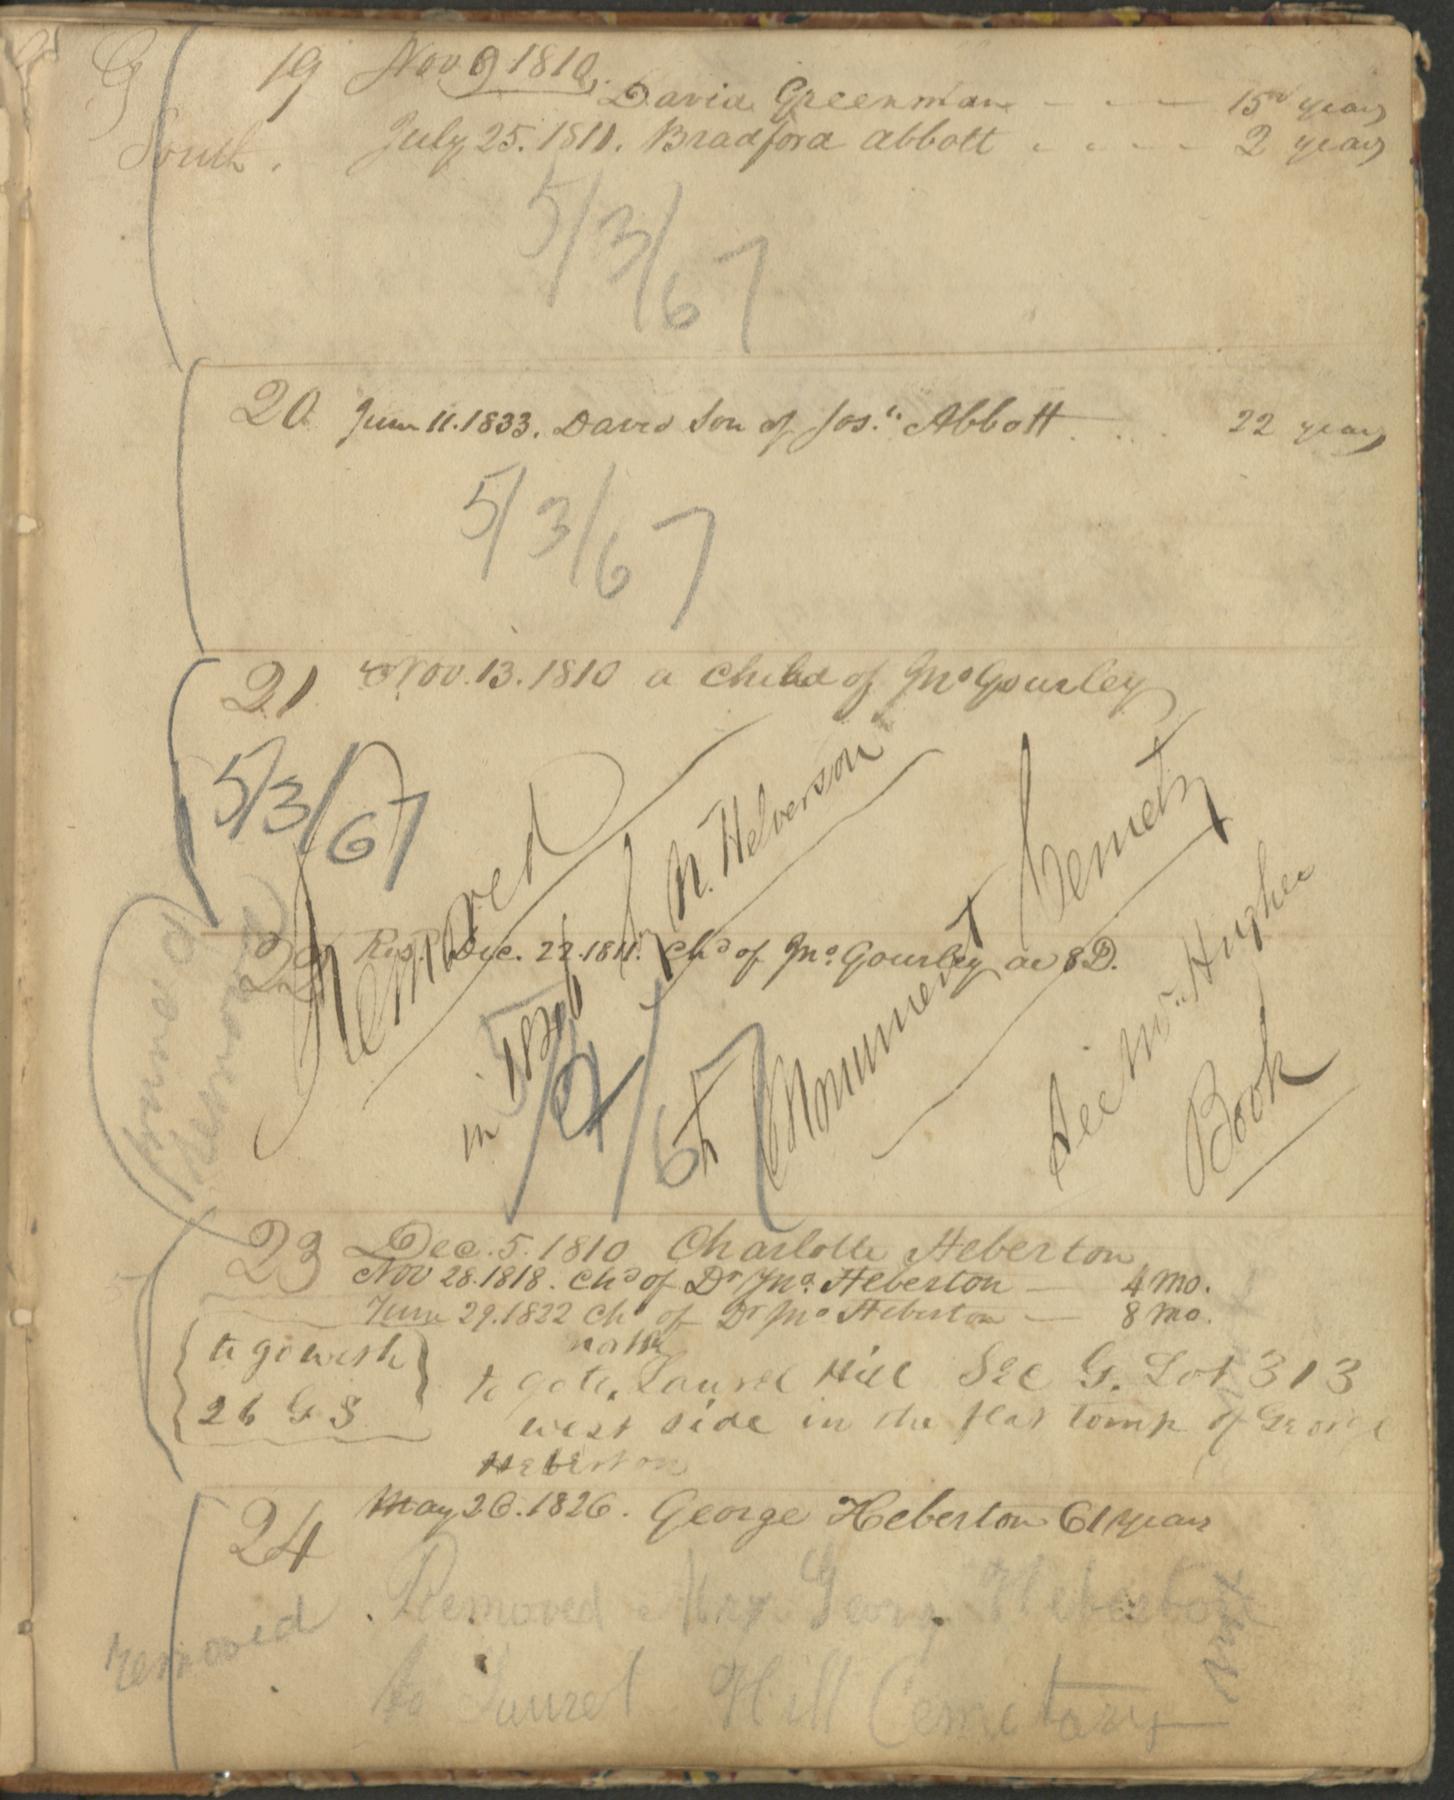 G 19 Nov 9 1810.
David Greenman - - - 15 years
South. July 25. 1811. Bradford Abbott - - - - 2 years
5/3/67
20 June 11. 1833. David Son of Jos.h Abbott . . . . 22 years
5/3/67
21 Nov. 13. 1810 a Child of Jno Gourley
5/3/67
Removed
in 1846 by N. Helverson
to Monument Cemety
See Wm Hughes
Book
22 Dec. 22. 1811. Chd of Jno. Gourley ae 8 D.
removed
23 Dec. 5. 1810 Charlotte Heberton
Nov 28. 1818. Chd of Dr Jno. Heberton — 4 Mo.
June 29. 1822 Chd of Dr Jno Heberton — 8 Mo.
to go with
26 G S
north
to gate, Laurel Hill Sec G. Lot 313
west side in the flat tomp of George
Heberton
24 May 26. 1826. George Heberton 61 years
removed
Removed Mrs George Heberton
to Laurel Hill Cemetary